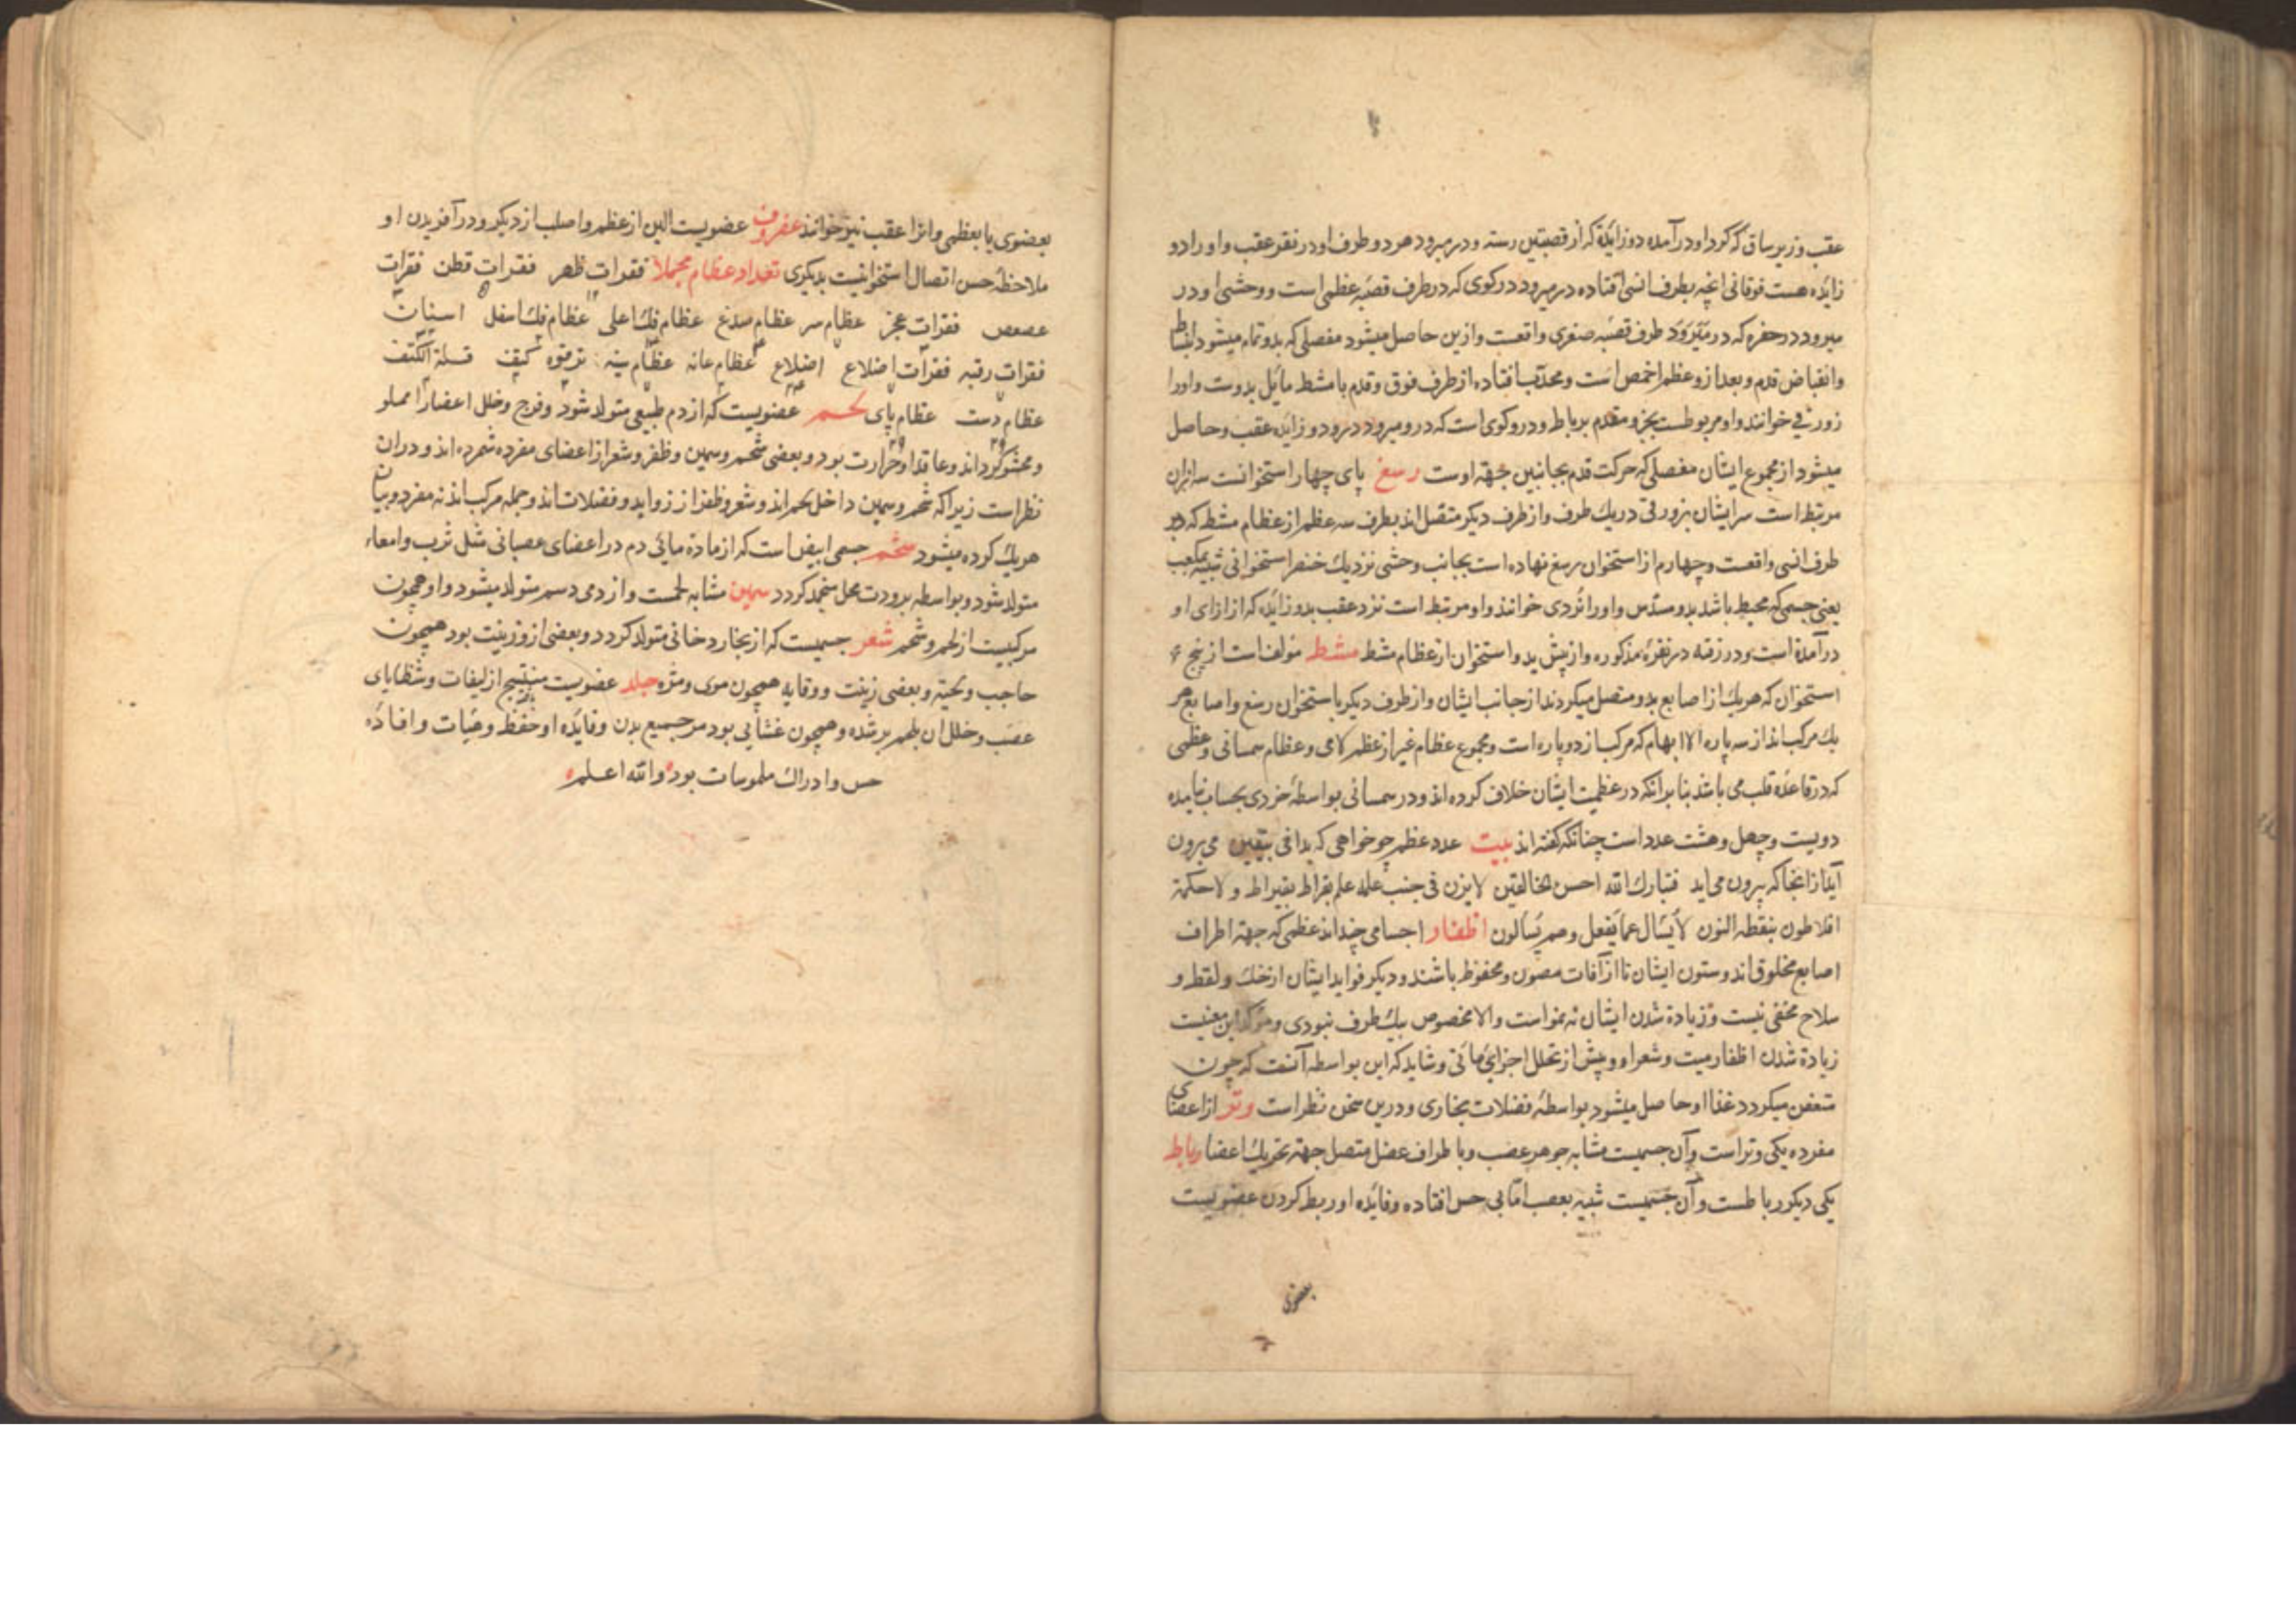 عقب و زیر ساق که کرد او درآمده دو زائدة که از قصبتین رسته و در میرود هر دو طرف او در نقر عقب و او را دو
زایده هست فوقانی انچه بطرف انسی افتاده در میرود در کوی که در طرف قصبه عظمی است و وحشی او در
میرود در حفره که در طرف قصبه صغری واقعست و ازین حاصل میشود مفصلی که بدو تمام میشود انبساط
و انقباض قدم و بعد ازو عظم اخمص است و محدب افتاده از طرف فوق و قدم با مشط مایل بدوست و اورا
زورقی خوانند و او مربوطست بجزو مقدم برباط و درو کوی است که درو میرود دو زایده عقب و حاصل
میشود از مجموع ایشان مفصلی که حرکت قدم بجانبین جهة اوست رسغ پای چهار استخوانست سه ازان
مرتبط است سر ایشان بزورقی در یک طرف و از طرف دیکر متصل اند بطرف سه عظم از عظام مشط که در
طرف انسی واقعست و چهارم از استخوان رسغ نهاده است بجانب وحشی نزدیک خنصر استخوانی شبیه بمکعب
یعنی جسمی که محیط باشد بدو مسدس و اورا نردی خوانند و او مرتبط است نزد عقب بدو زائده که از ازای او
درآمدة است و در رفته در نقرهٔ مذکوره و از پیش بدو استخوان از عظام مشط مشط مولف است از پنج
استخوان که هریک از اصابع بدو متصل میکردند از جانب ایشان و از طرف دیکر باستخوان رسغ و اصابع هر
یک مرکب اند از سه پاره الا ابهام که مرکب از دو پاره است و مجموع عظام غیر از عظم لامی و عظام سمسانی و عظمی
که در قاعدهٔ قلب می باشد بنابر انکه در عظمیت ایشان خلاف کرده اند و در سمسانی بواسطهٔ خردی بحساب نیامده
دویست و چهل و هشت عدد است چنانکه کفته اند بیت عدد عظم چو خواهی که بدانی بیقین می برون
آید از انجا که برون می اید فتبارک الله احسن الخالقین لا یزن فی جنب علمه علم بقراط بقیراط و لا حکمة
افلاطون بنقطه النون لا یسال عما یفعل وهم یسالون اظفار اجسامی چند اند عظمی که جهة اطراف
اصابع مخلوق اند و ستون ایشان تا از آفات مصون و محفوظ باشند و دیکر فواید ایشان از حک و لقط و
سلاح مخفی نیست و زیادة شدن ایشان نه بنمو است والا مخصوص بیک طرف نبودی و موکد این معنیست
زیادة شدن اظفار میت و شعر او و پیش از تحلل اجزای مائی و شاید که این بواسطه آنست که چون
متعفن میکردد غذا او حاصل میشود بواسطهٔ فضلات بخاری و درین سخن نظر است وتر از اعضای
مفرده یکی وتر است و آن جسمیست مشابه جوهر عصب و با طراف عضل متصل جهة تحریک اعضا رباط
یکی دیکر رباطست و آن جسمیست شبیه بعصب اما بی حس افتاده و فائده او ربط کردن عضویست
بعضوی
بعضوی یا بعظمی و انرا عقب نیز خوانند غضروف عضویست الین از عظم و اصلب از دیکر و در آفریدن او
ملاحظهٔ حسن اتصال استخوانیست بدیکری تعداد عظام مجملا فقرات ظهر فقرات قطن فقرات
عصعص فقرات عجز عظام سر عظام صدغ عظام فک اعلی عظام فک اسفل اسنان
فقرات رقبه فقرات اضلاع اضلاع عظام عانه عظام سینه ترقوه کتف قلة الکتف
عظام دست عظام پای لحم عضویست که از دم طبیعی متولد شود و فرج و خلل اعضا را مملو
و محشو کرداند و عاقد او حرارت بود و بعضی شحم و سمین و ظفر و شعر از اعضای مفرده شمرده اند و دران
نظر است زیرا که شحم و سمین داخل لحم اند و شعر و ظفر از زواید و فضلات اند و جمله مرکب اند نه مفرد و بیان
هریک کرده میشود شحم جسمی ابیض است که از مادة مائی دم در اعضای عصبانی مثل ثرب و امعاء
متولد شود و بواسطه برودت محل منجمد کردد سمین مشابه لحمست و از دمی دسم متولد میشود و او همچون
مرکبیست از لحم و شحم شعر جسمیست که از بخار دخانی متولد کردد و بعضی ازو زینت بود همچون
حاجب و لحیة و بعضی زینت و وقایه همچون موی و مژه جلد عضویست منتسج از لیفات و شظایای
عصب و خلل ان بلحم پر شده و همچون غشایی بود مر جمیع بدن و فایده او حفظ و هیات و افاده
حس و ادراک ملموسات بود والله اعلم